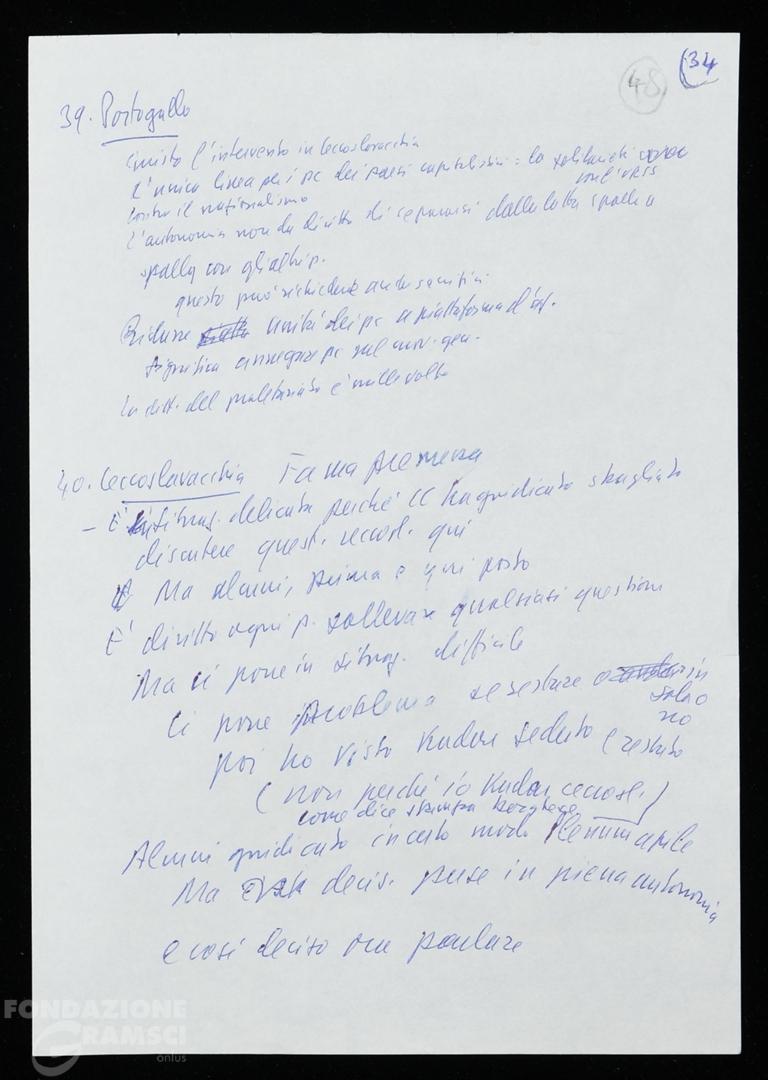 34
48
39. Portogallo
Giusto l'intervento in Cecoslovacchia
L'unica linea per i pc dei paesi capitalistici: la solidarietà
con l'URSS
contro il nazionalismo
L'autonomia non dà diritto di separarsi dalla lotta spalla a
spalla con gli altri p.
questo può richiedere anche sacrifici
Ridurre unità dei pc a piattaforma d'az.
significa
La ditt. del proletariato è mille volte
40. Cecoslovacchia
– È situaz. delicata perché CC ha giudicato sbagliato
discutere quest. cecosl. qui
Ma alcuni, prima e qui posto
È diritto ogni p. sollevare qualsiasi questione
Ma ci pone in situaz. difficile
Ci pone problema se restare o in
sala o
no
poi ho visto Kadar seduto e restato
(non perché io Kadar cecosl.)
come dice stampa borghese
Alcuni giudicato in certo modo Plenum aprile
Ma decis. prese in piena autonomia
e così deciso ora parlare
FONDAZIONE
GRAMSCI
onlus